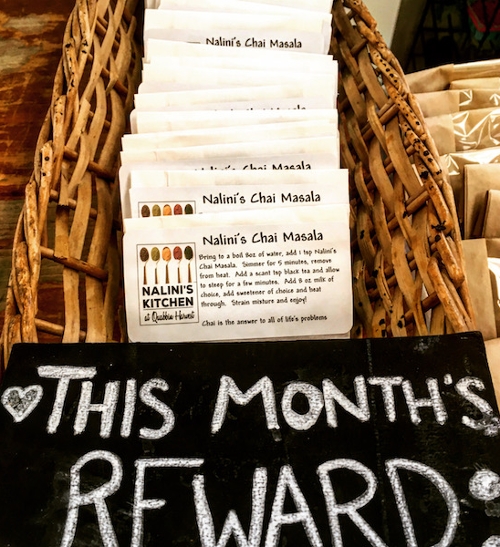 Nalini's Chai Masala
Nalini's Chai Masala
Nalini's Chai Masala
Nalini's Chai Masala
Nalini's Chai Masala
Bring to a boil 8oz of water, add 1 tsp Nalini's
Chai Masala. Simmer for 5 minutes, remove
from heat. Add a scant tsp black tea and allow
to steep for a few minutes. Add 8 oz milk of
choice, add sweetener of choice and heat
through. Strain mixture and enjoy!
Chai is the answer to all of life's problems
NALINI'S
KITCHEN
at Quabbin Harvest
THIS MONTH'S
REWARD: